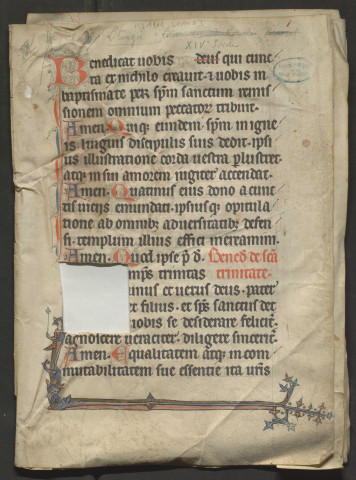 XIV Siècle
Benedicat uobis deus qui cunc
ta ex nichilo creauit. ⁊ uobis in
baptismate per sp̄m sanctum remis
sionem omnium peccatoꝝ tribuit.
Amen. Quiq; eundem sp̄m in igne
is linguis discipulis suis dedit. ips
ius illustratione corda uestra plustret
atq; in sui amorem iugiter accendat.
Amen. Quatinus eius dono a cunc
tis uicijs emundati. ipsiusq; opitula
tione ab omnib; aduersitatib; defen
si. templum illius effici mereamini.
Amen. Quod ipse p̄ d̄. Bened de scā
mp̄s trinitas trinitate.
unus et uerus deus. pater
et filius. et sp̄s sanctus det
uobis se desiderare felicit̄.
agnoscere ueraciter. diligere sincerit̄.
Amen. Equalitatem atq; incom
mutabilitatem sue essentie ita ur̄is